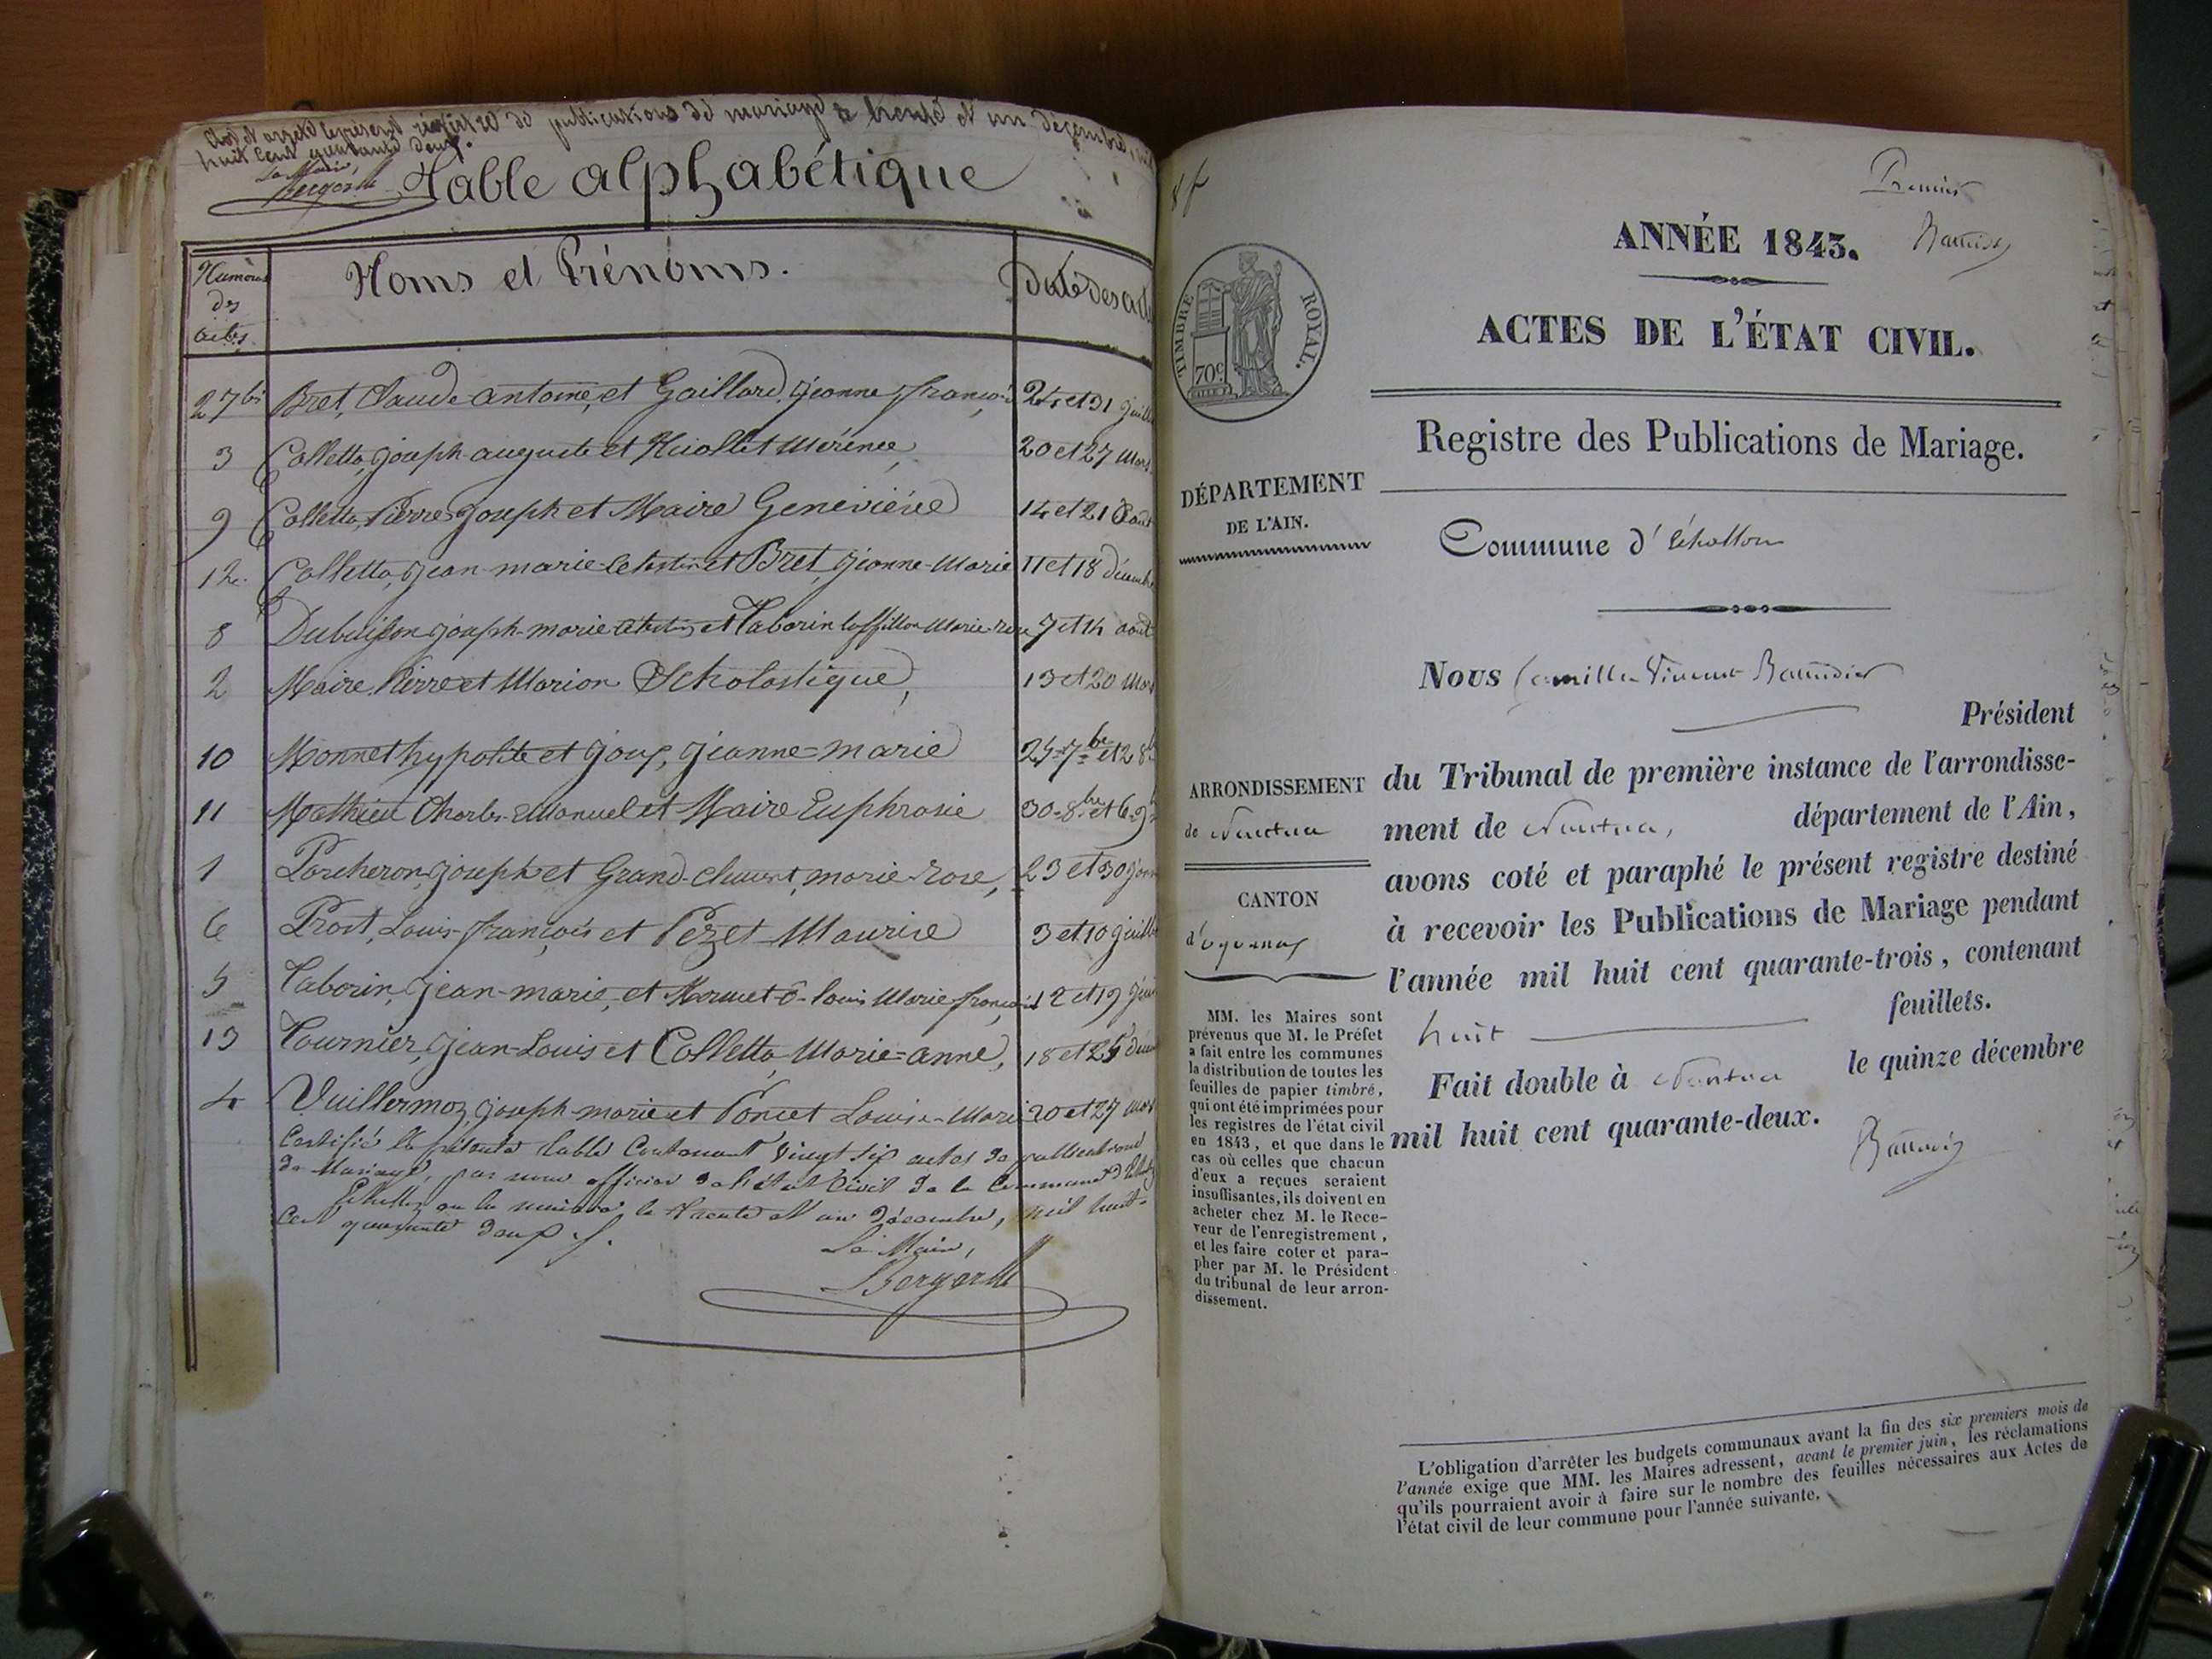 Clos et arrêté le présent registre de publications de mariage le trente et un décembre, mil
huit cent quarante deux.
Le Maire,
Table alphabétique
Numéros des actes.
Noms et Prénoms.
Date des act
27 bis Bret, Claude antoine, et Gaillard, jeanne françoi 24 et 31 juill
3 Colletta, joseph auguste et Mérence 20 et 27 Mars
9 Colletta, Pierre joseph et Maire Geneviéve 14 et 21 Aout
12. Colletta, jean-marie-Celestin et Bret, jeanne-Marie 11 et 18 décemb
8 Dubuisson joseph-marie celestin et Taborin Marie-rose 7 et 14 aout
2 Maire, Pierre et Marion Scholastique, 13 et 20 Mars
10 Monnet hypolite et Joux, jeanne=marie 25-7bre et 2 8b
11 Mathieu Charles-Emanuel et Maire Euphrosie 30-8bre et 6-9b
1 Porcheron, joseph et Grand-Clément, marie-rose, 23 et 30 jan
6 Prost, Louis-françois et Pezet Maurise 3 et 10 juill
5 Taborin, jean-marie, et Marie françoi 12 et 19 jui
13 Tournier, jean-Louis et Colletta, Marie=anne, 18 et 25 déc
4 Vuillermoz, joseph-marie et Poncet Louise-Mari 20 et 27 Mars
Certifié la présente table Contenant vingt six actes de publications
de Mariage, par nous officier de l'état Civil de la Commune d'Echallon
Echallon en la mairie le trente et un Décembre, mil huit-
Cent quarante deux.
Le Maire,
Premier
ANNÉE 1843.
ACTES DE L'ÉTAT CIVIL.
TIMBRE ROYAL.
70 c
Registre des Publications de Mariage.
DÉPARTEMENT
DE L'AIN.
Commune d'Echallon
Nous Camille Vincent
Président
ARRONDISSEMENT
de Nantua
du Tribunal de première instance de l'arrondisse-
ment de Nantua, département de l'Ain,
avons coté et paraphé le présent registre destiné
à recevoir les Publications de Mariage pendant
l'année mil huit cent quarante-trois, contenant
huit feuillets.
Fait double à Nantua le quinze décembre
mil huit cent quarante-deux.
CANTON
d'oyonnax
MM. les Maires sont
prévenus que M. le Préfet
a fait entre les communes
la distribution de toutes les
feuilles de papier timbré,
qui ont été imprimées pour
les registres de l'état civil
en 1843, et que dans le
cas où celles que chacun
d'eux a reçues seraient
insuffisantes, ils doivent en
acheter chez M. le Rece-
veur de l'enregistrement,
et les faire coter et para-
pher par M. le Président
du tribunal de leur arron-
dissement.
L'obligation d'arrêter les budgets communaux avant la fin des six premiers mois de
l'année exige que MM. les Maires adressent, avant le premier juin, les réclamations
qu'ils pourraient avoir à faire sur le nombre des feuilles nécessaires aux Actes de
l'état civil de leur commune pour l'année suivante.